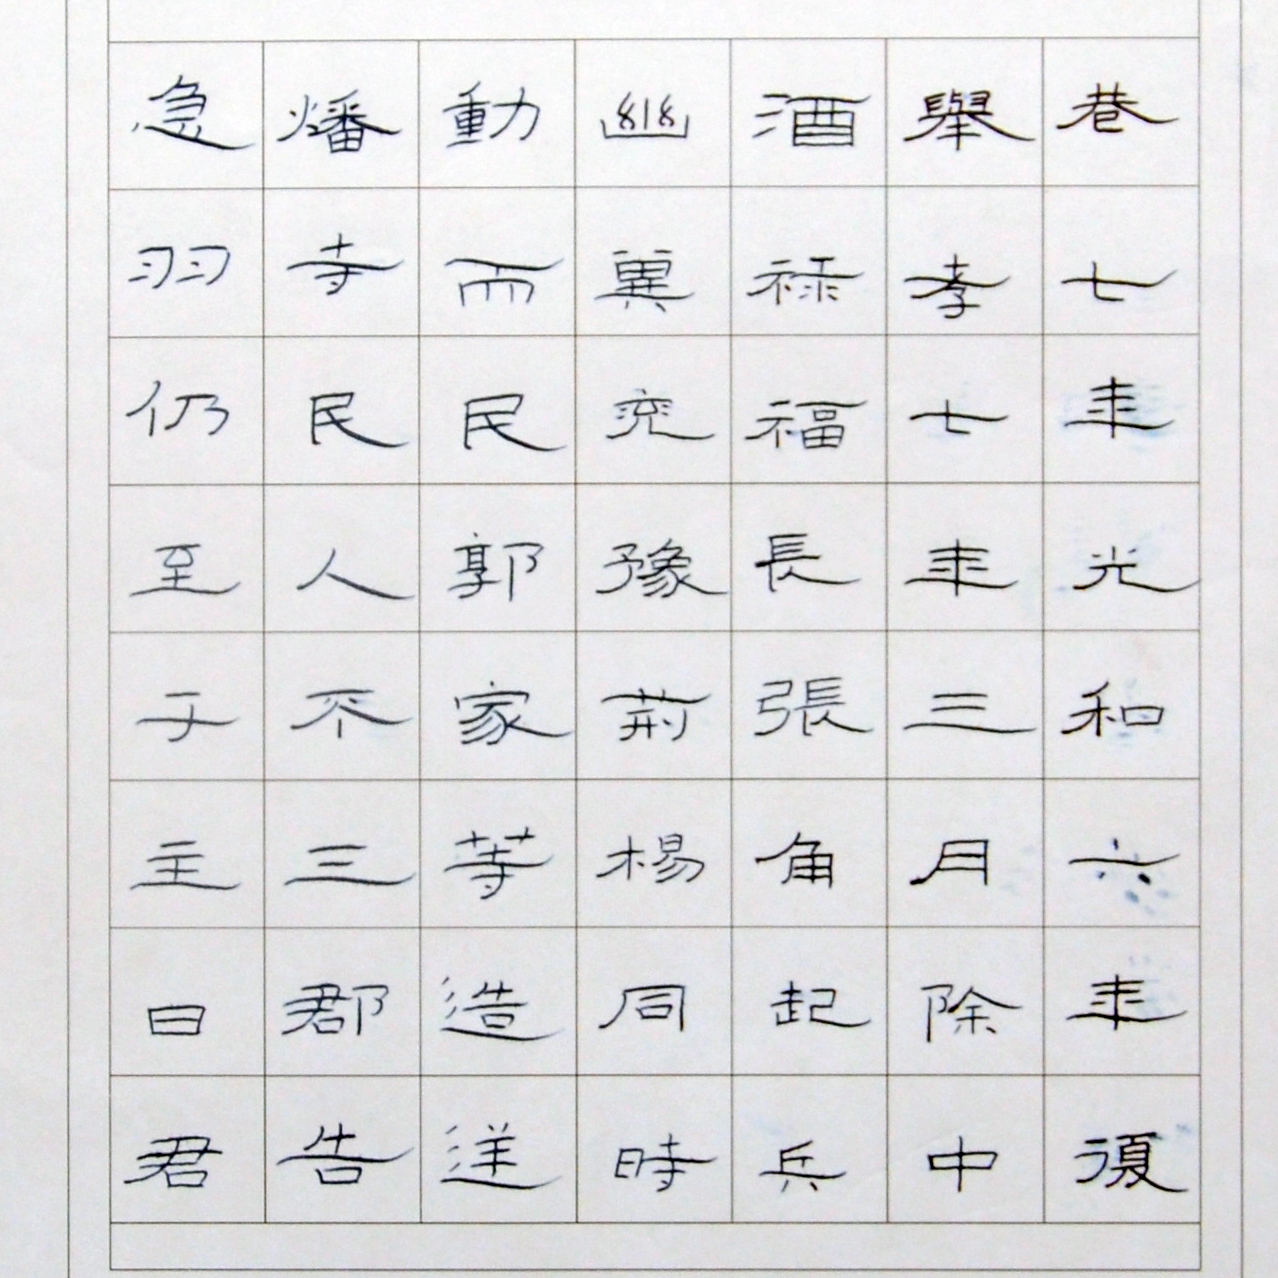 巷七年光和六年復
舉孝七年三月除中
酒祿福長張角起兵
幽冀兖豫荊楊同時
動而民郭家等造逆
燔寺民人不三郡告
急羽仍至于主曰君